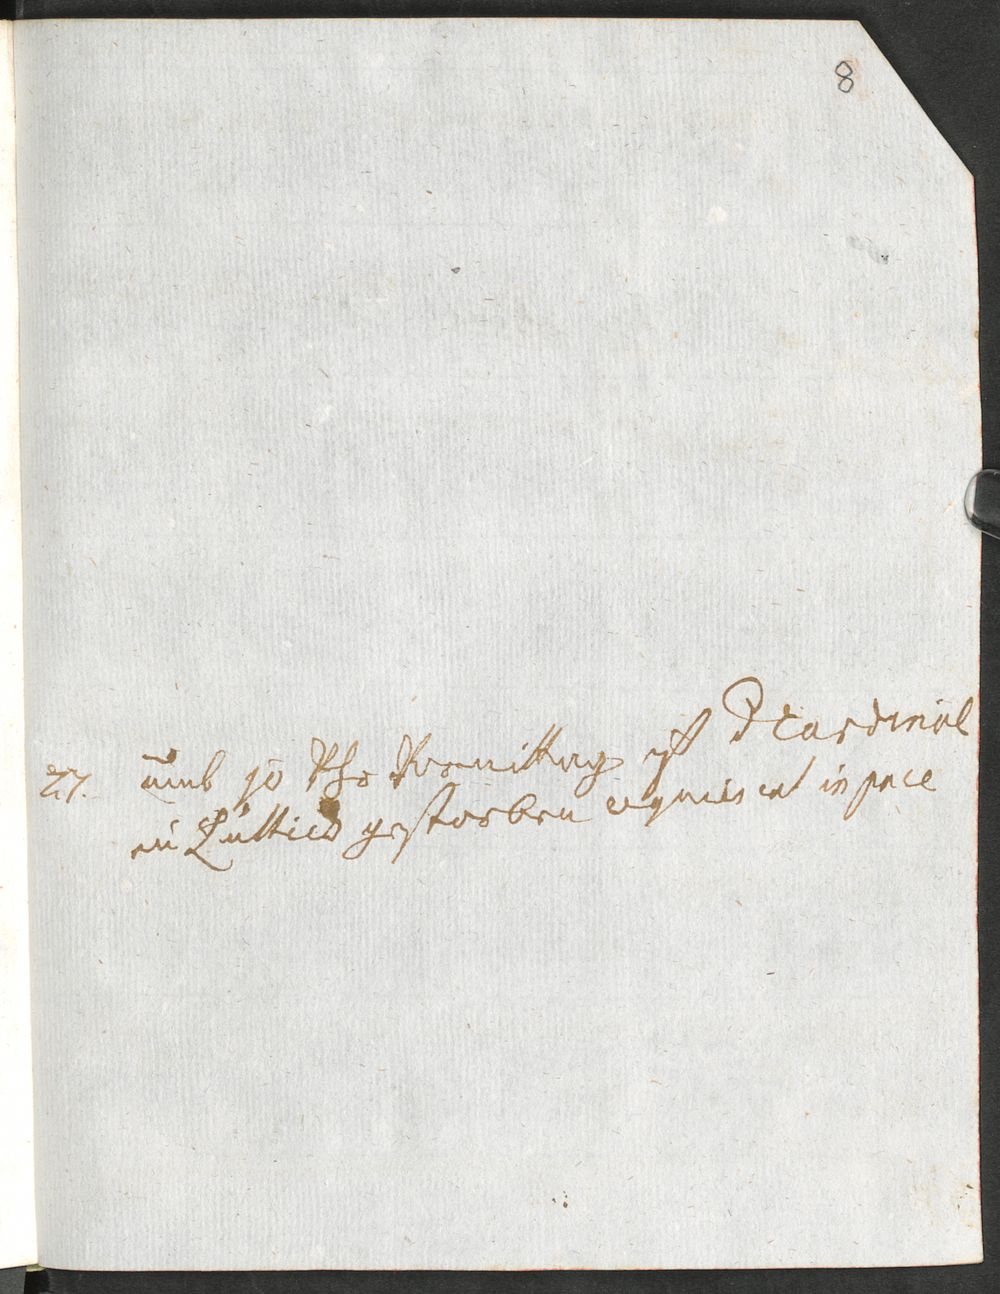 8
27. umb 10 Uhr Vormittag ist D Cardinal
in Lüttich gestorben requiescat in pace